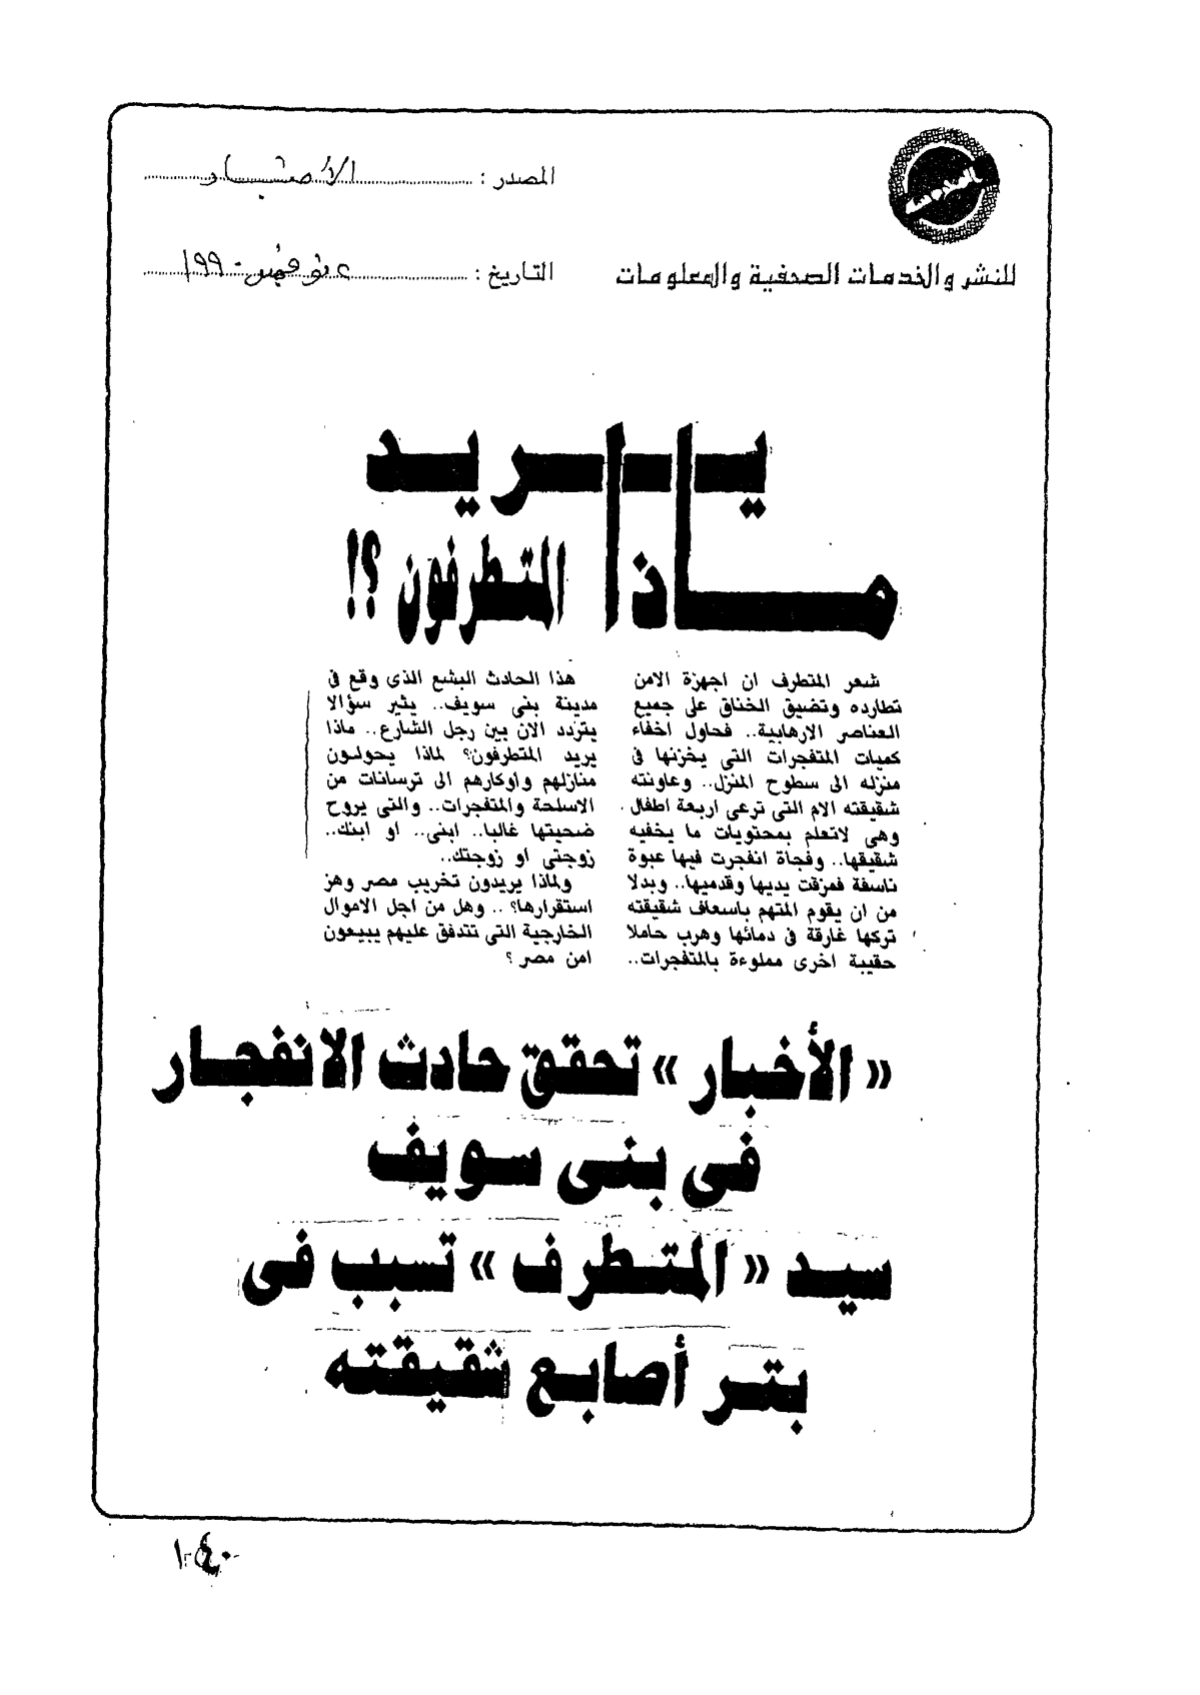 المصدر : الأخبار
للنشر والخدمات الصحفية والمعلومات
التاريخ : نوفمبر ١٩٩٠
ماذا يريد
المتطرفون ؟!
شعر المتطرف ان اجهزة الامن
تطارده وتضيق الخناق على جميع
العناصر الارهابية.. فحاول اخفاء
كميات المتفجرات التى يخزنها فى
منزله الى سطوح المنزل.. وعاونته
شقيقته الام التى ترعى اربعة اطفال
وهى لاتعلم بمحتويات ما يخفيه
شقيقها.. وفجاة انفجرت فيها عبوة
ناسفة فمزقت يديها وقدميها.. وبدلا
من ان يقوم المتهم باسعاف شقيقته
تركها غارقة فى دمائها وهرب حاملا
حقيبة اخرى مملوءة بالمتفجرات..
هذا الحادث البشع الذى وقع فى
مدينة بنى سويف.. يثير سؤالا
يتردد الان بين رجل الشارع.. ماذا
يريد المتطرفون؟ لماذا يحولون
منازلهم واوكارهم الى ترسانات من
الاسلحة والمتفجرات.. والتى يروح
ضحيتها غالبا.. ابنى.. او ابنك..
زوجتى او زوجتك..
ولماذا يريدون تخريب مصر وهز
استقرارها؟ .. وهل من اجل الاموال
الخارجية التى تتدفق عليهم يبيعون
امن مصر ؟
« الأخبار » تحقق حادث الانفجار
فى بنى سويف
سيد « المتطرف » تسبب فى
بتر أصابع شقيقته